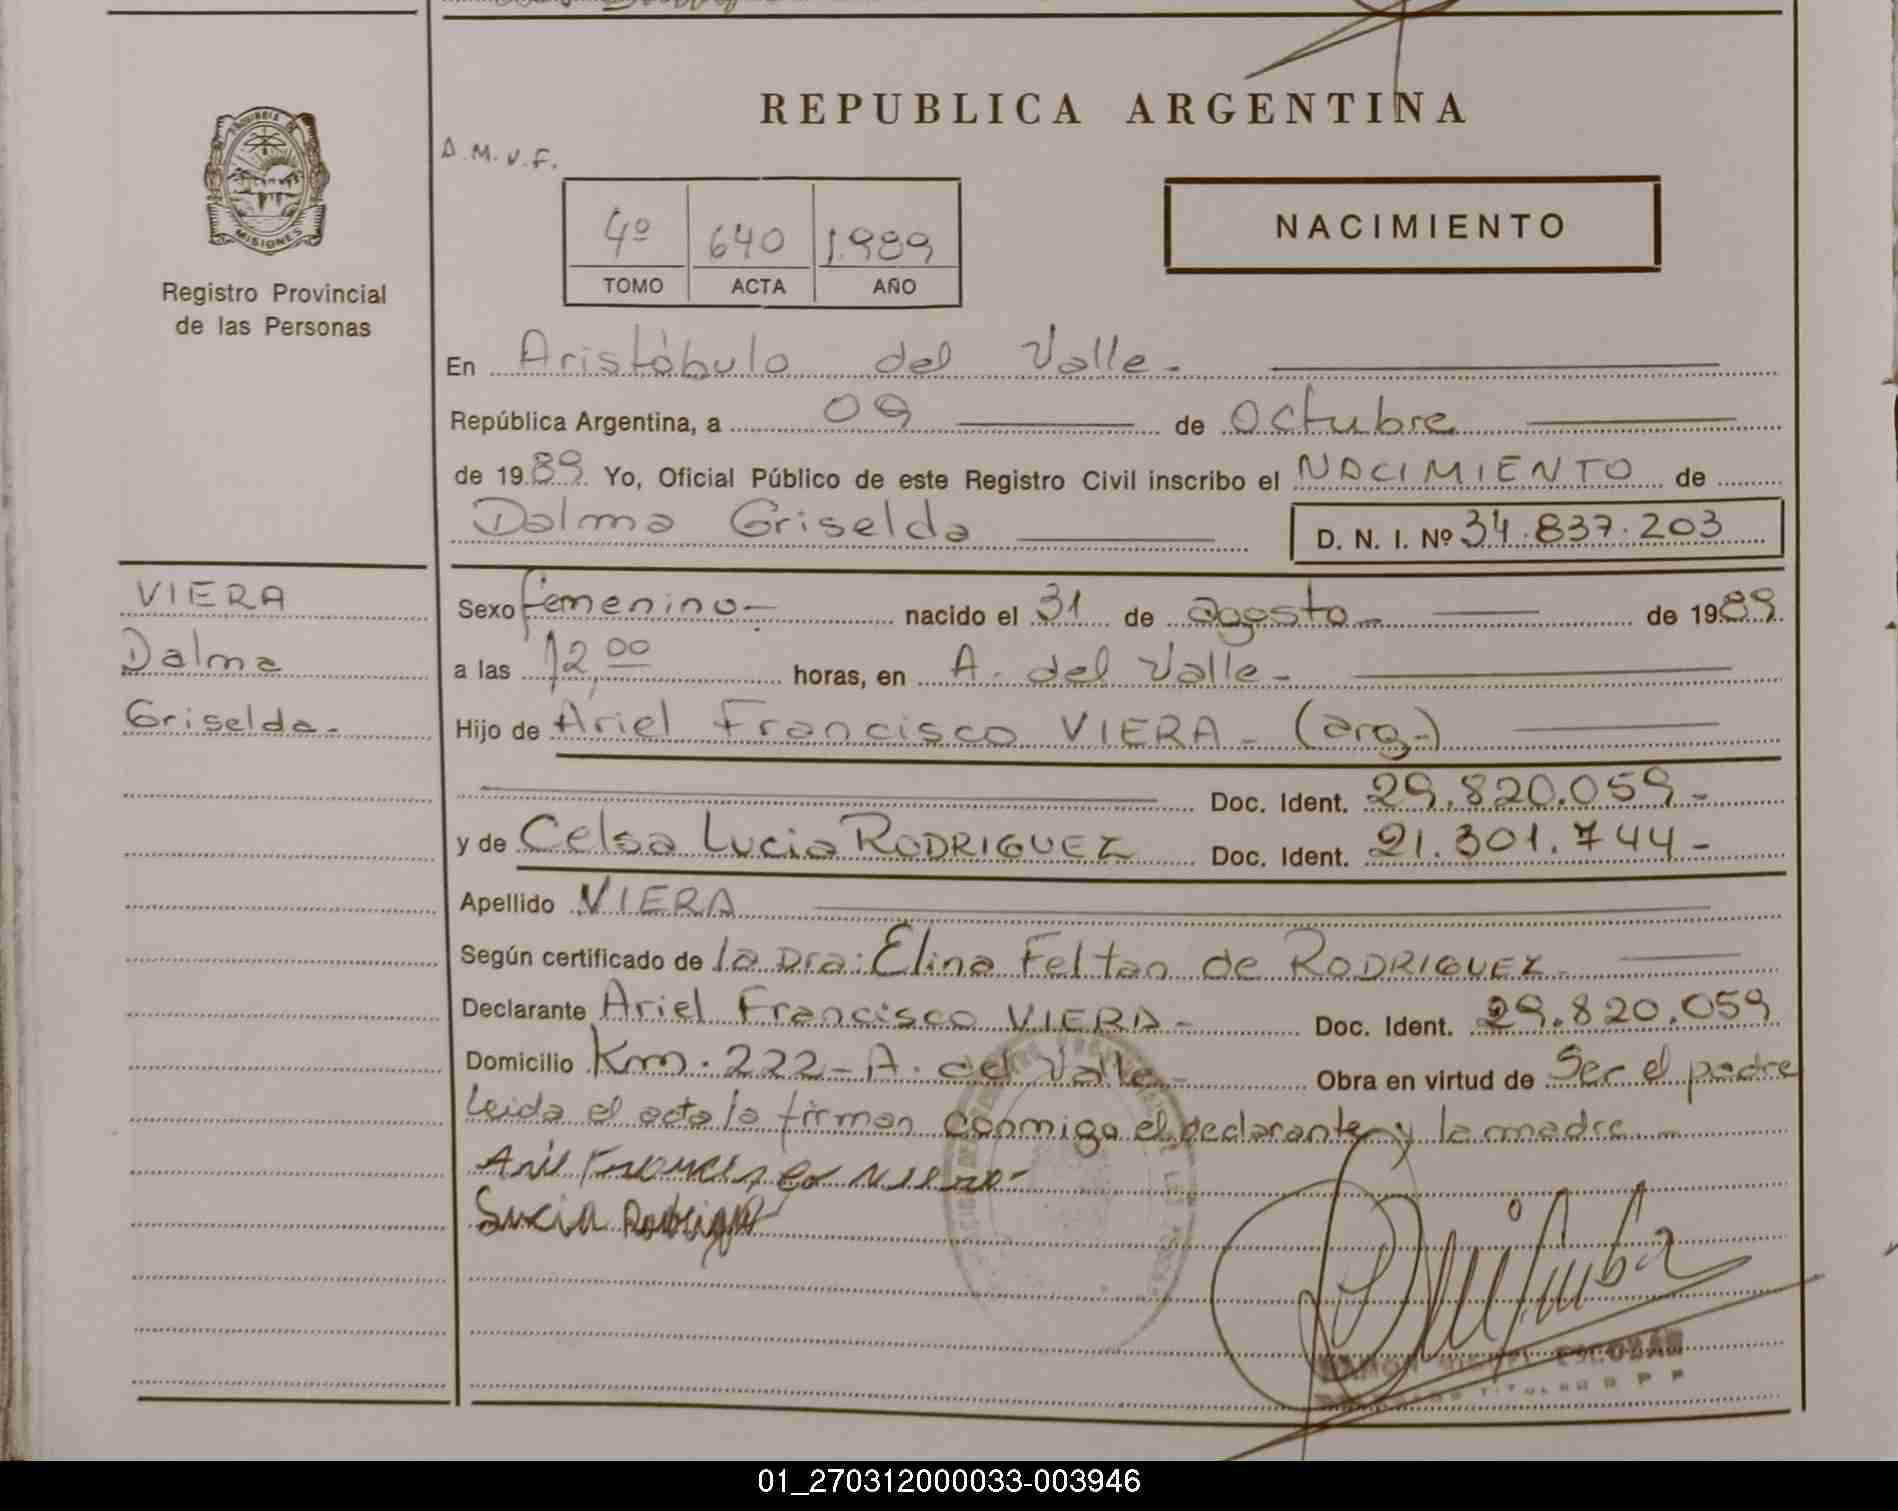 REPUBLICA ARGENTINA
A.M.V.F.
PROVINCIA DE
MISIONES
Registro Provincial
de las Personas
4º 640 1.989
TOMO ACTA AÑO
NACIMIENTO
En Aristóbulo del Valle.-
República Argentina, a 09 de Octubre
de 1989 Yo, Oficial Público de este Registro Civil inscribo el NACIMIENTO de
Dalma Griselda D. N. I. Nº 34.837.203
VIERA
Dalma
Griselda.-
Sexo femenino.- nacido el 31 de agosto- de 1989
a las 12,00 horas, en A. del Valle.-
Hijo de Ariel Francisco VIERA - (arg.)
Doc. Ident. 29.820.059-
y de Celsa Lucia RODRIGUEZ Doc. Ident. 21.301.744-
Apellido VIERA
Según certificado de la Dra: Elina Feltan de RODRIGUEZ-
Declarante Ariel Francisco VIERA- Doc. Ident. 29.820.059
Domicilio Km. 222-A. del Valle- Obra en virtud de Ser el padre
Leida el acta la firman conmigo el declarante y la madre.-
Francisco
Lucia Rodriguez
RAMON MIGUEL ESCOBAR
TITULAR R P P
01_270312000033-003946